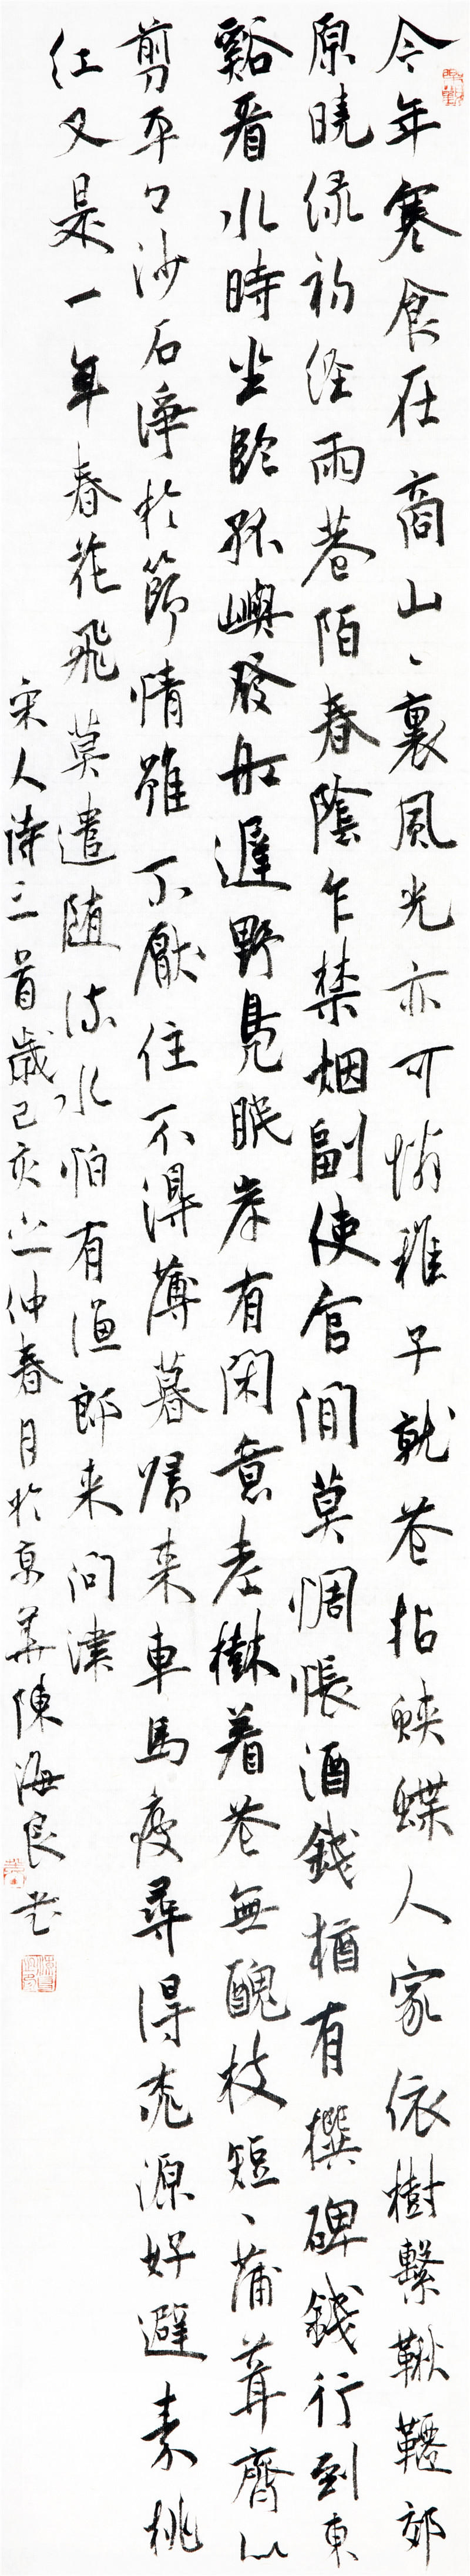 今年寒食在商山山裏風光亦可憐稚子就花拈蛺蝶人家依樹繫鞦韆郊
原曉綠初經雨巷陌春陰乍禁烟副使官閒莫惆悵酒錢猶有撰碑錢行到東
谿看水時坐臨孤嶼發船遲野鳧眠岸有閑意老樹着花無醜枝短短蒲茸齊似
剪平平沙石淨於篩情雖不厭住不得薄暮歸來車馬疲尋得桃源好避秦桃
紅又是一年春花飛莫遣隨流水怕有漁郎來問津
宋人詩三首歲己亥之仲春月於京華陳海良書